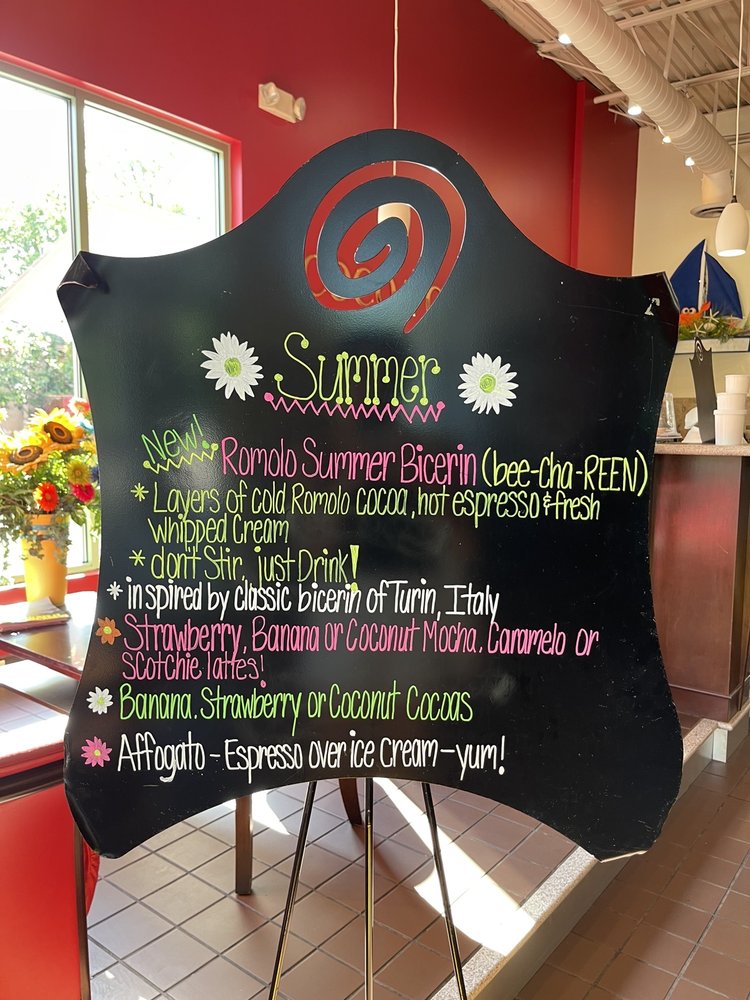 Summer
New! Romolo Summer Bicerin (bee-cha-REEN)
* Layers of cold Romolo cocoa, hot espresso & fresh
whipped Cream
* don't Stir, just Drink!
* inspired by classic bicerin of Turin, Italy
Strawberry, Banana or Coconut Mocha, Caramelo or
Scotchie lattes!
Banana, Strawberry or Coconut Cocoas
Affogato - Espresso over ice cream - yum!